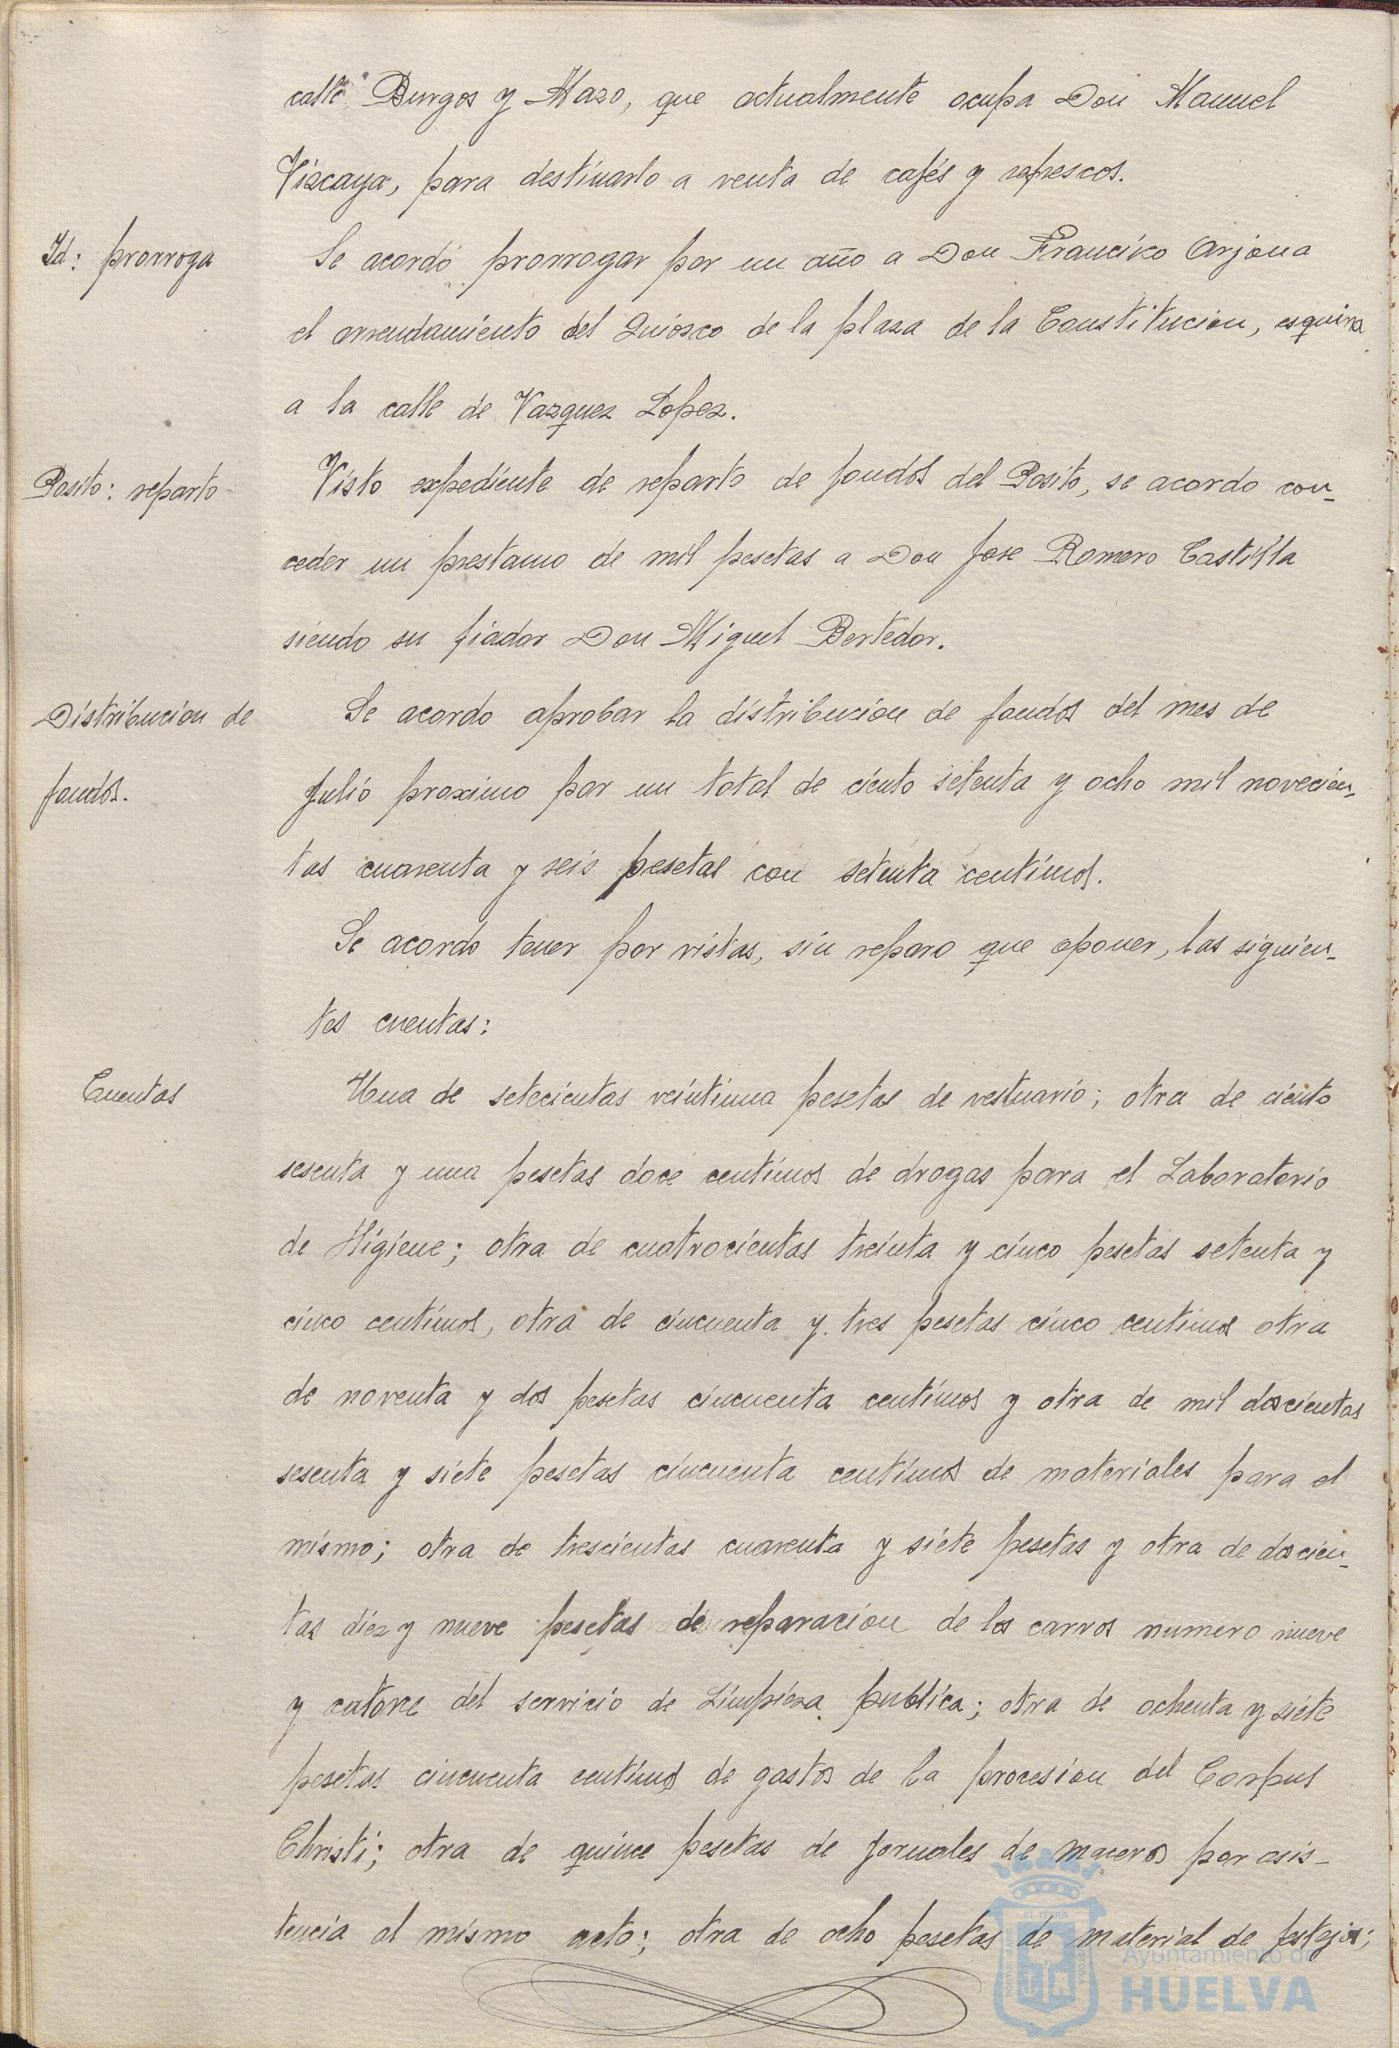 calle Burgos y Mazo, que actualmente ocupa Don Manuel
Vizcaya, para destinarlo a venta de cafés y refrescos.
Id: prorroga
Se acordó prorrogar por un año a Don Francisco Arjona
el arrendamiento del Quiosco de la plaza de la Constitucion, esquina
a la calle de Vazquez Lopez.
Posito: reparto
Visto expediente de reparto de fondos del Posito, se acordo con-
ceder un prestamo de mil pesetas a Don Jose Romero Castilla
siendo su fiador Don Miguel Bertedor.
Distribucion de
fondos.
Se acordo aprobar la distribucion de fondos del mes de
Julio proximo por un total de ciento setenta y ocho mil novecien-
tas cuarenta y seis pesetas con setenta centimos.
Se acordo tener por vistas, sin reparo que oponer, las siguien-
tes cuentas:
Cuentas
Una de setecientas veintiuna pesetas de vestuario; otra de ciento
sesenta y una pesetas doce centimos de drogas para el Laboratorio
de Higiene; otra de cuatrocientas treinta y cinco pesetas setenta y
cinco centimos, otra de cincuenta y tres pesetas cinco centimos otra
de noventa y dos pesetas cincuenta centimos y otra de mil doscientas
sesenta y siete pesetas cincuenta centimos de materiales para el
mismo; otra de trescientas cuarenta y siete pesetas y otra de doscien-
tas diez y nueve pesetas de reparacion de los carros numero nueve
y catorce del servicio de Limpieza publica; otra de ochenta y siete
pesetas cincuenta centimos de gastos de la procesion del Corpus
Christi; otra de quince pesetas de jornales de maceros por asis-
tencia al mismo acto; otra de ocho pesetas de material de festejos;
Ayuntamiento de
HUELVA